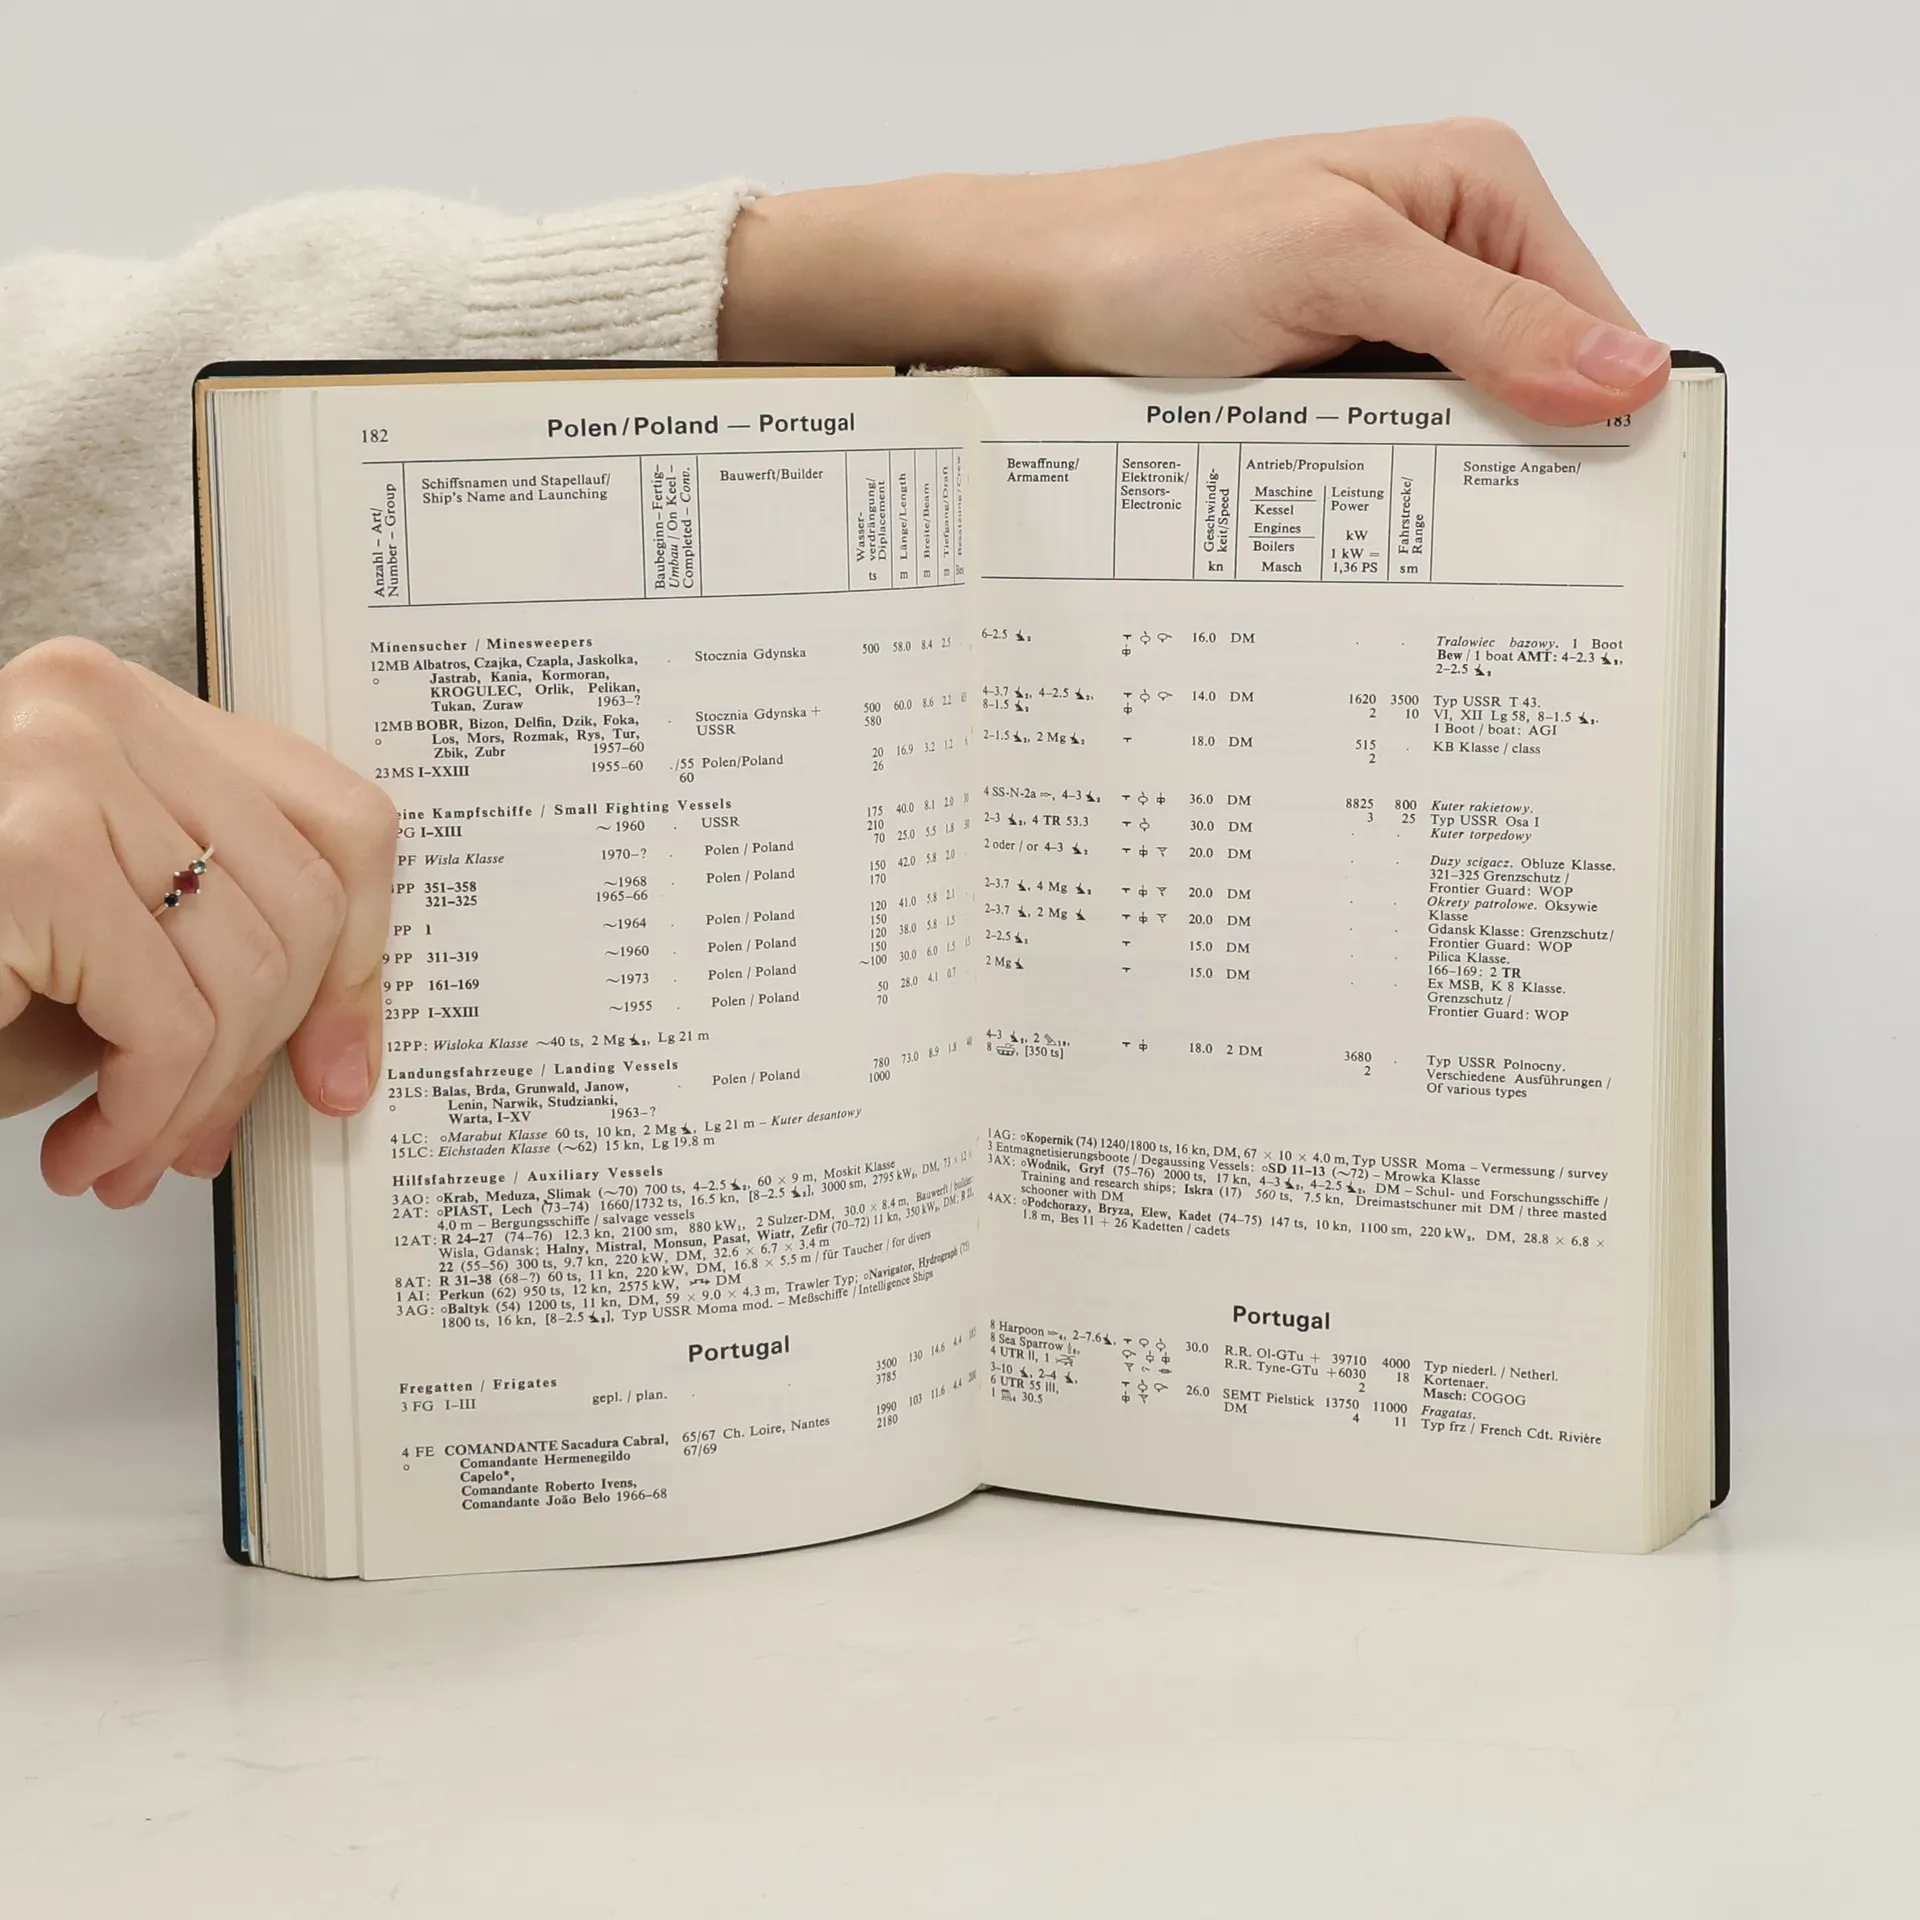 182
Polen/Poland — Portugal
Anzahl – Art/
Number – Group
Schiffsnamen und Stapellauf/
Ship's Name and Launching
Baubeginn–Fertig–
Umbau / On Keel –
Completed – Conv.
Bauwerft/Builder
Wasser-
verdrängung/
Diplacement
ts
Länge/Length
m
Breite/Beam
m
Tiefgang/Draft
m
Besatzung/Crew
Minensucher / Minesweepers
12MB Albatros, Czajka, Czapla, Jaskolka, . Stocznia Gdynska 500 58.0 8.4 2.5
Jastrab, Kania, Kormoran,
KROGULEC, Orlik, Pelikan,
Tukan, Zuraw 1963–?
12MB BOBR, Bizon, Delfin, Dzik, Foka, . Stocznia Gdynska + 500 60.0 8.6 2.2
Los, Mors, Rozmak, Rys, Tur, USSR 580
Zbik, Zubr 1957–60
23MS I–XXIII 1955–60 ./55 Polen/Poland 20 16.9 3.2 1.2
60 26
eine Kampfschiffe / Small Fighting Vessels
PG I–XIII ~ 1960 . USSR 175 40.0 8.1 2.0
210
PF Wisla Klasse 1970–? . Polen / Poland 70 25.0 5.5 1.8
PP 351–358 ~1968 . Polen / Poland 150 42.0 5.8 2.0
321–325 1965–66 170
PP 1 ~1964 . Polen / Poland 120 41.0 5.8 2.1
150
9 PP 311–319 ~1960 . Polen / Poland 120 38.0 5.8 1.5
150
9 PP 161–169 ~1973 . Polen / Poland ~100 30.0 6.0 1.5
23PP I–XXIII ~1955 . Polen / Poland 50 28.0 4.1 0.7
70
12PP: Wisloka Klasse ~40 ts, 2 Mg, Lg 21 m
Landungsfahrzeuge / Landing Vessels
23LS: Balas, Brda, Grunwald, Janow, . Polen / Poland 780 73.0 8.9 1.8
Lenin, Narwik, Studzianki, 1000
Warta, I–XV 1963–?
4 LC: Marabut Klasse 60 ts, 10 kn, 2 Mg, Lg 21 m – Kuter desantowy
15LC: Eichstaden Klasse (~62) 15 kn, Lg 19.8 m
Hilfsfahrzeuge / Auxiliary Vessels
3AO: Krab, Meduza, Slimak (~70) 700 ts, 4–2.5, 60 × 9 m, Moskit Klasse
2AT: PIAST, Lech (73–74) 1660/1732 ts, 16.5 kn, [8–2.5], 3000 sm, 2795 kW, DM, 73 × 12 ×
4.0 m – Bergungsschiffe / salvage vessels
12AT: R 24–27 (74–76) 12.3 kn, 2100 sm, 880 kW, 2 Sulzer-DM, 30.0 × 8.4 m, Bauwerft / builder
Wisla, Gdansk; Halny, Mistral, Monsun, Pasat, Wiatr, Zefir (70–72) 11 kn, 350 kW, DM; R 21,
22 (55–56) 300 ts, 9.7 kn, 220 kW, DM, 32.6 × 6.7 × 3.4 m
8AT: R 31–38 (68–?) 60 ts, 11 kn, 220 kW, DM, 16.8 × 5.5 m / für Taucher / for divers
1 AI: Perkun (62) 950 ts, 12 kn, 2575 kW, DM
3AG: Baltyk (54) 1200 ts, 11 kn, DM, 59 × 9.0 × 4.3 m, Trawler Typ; Navigator, Hydrograph (75)
1800 ts, 16 kn, [8–2.5], Typ USSR Moma mod. – Meßschiffe / Intelligence Ships
Portugal
Fregatten / Frigates
3 FG I–III gepl. / plan. . . 3500 130 14.6 4.4
3785
4 FE COMANDANTE Sacadura Cabral, 65/67 Ch. Loire, Nantes 1990 103 11.6 4.4
Comandante Hermenegildo 67/69 2180
Capelo*,
Comandante Roberto Ivens,
Comandante João Belo 1966–68
Polen/Poland — Portugal
183
Bewaffnung/
Armament
Sensoren-
Elektronik/
Sensors-
Electronic
Geschwindig-
keit/Speed
kn
Antrieb/Propulsion
Maschine
Kessel
Engines
Boilers
Masch
Leistung
Power
kW
1 kW =
1,36 PS
Fahrstrecke/
Range
sm
Sonstige Angaben/
Remarks
6–2.5 16.0 DM . . Tralowiec bazowy. 1 Boot
Bew / 1 boat AMT: 4–2.3,
2–2.5
4–3.7, 4–2.5, 14.0 DM 1620 3500 Typ USSR T 43.
8–1.5 2 10 VI, XII Lg 58, 8–1.5.
1 Boot / boat: AGI
2–1.5, 2 Mg 18.0 DM 515 . KB Klasse / class
2
4 SS-N-2a, 4–3 36.0 DM 8825 800 Kuter rakietowy.
3 25 Typ USSR Osa I
2–3, 4 TR 53.3 30.0 DM . . Kuter torpedowy
2 oder / or 4–3 20.0 DM . . Duzy scigacz. Obluze Klasse.
321–325 Grenzschutz /
Frontier Guard: WOP
2–3.7, 4 Mg 20.0 DM . . Okrety patrolowe. Oksywie
Klasse
2–3.7, 2 Mg 20.0 DM . . Gdansk Klasse: Grenzschutz/
Frontier Guard: WOP
2–2.5 15.0 DM . . Pilica Klasse.
166–169: 2 TR
2 Mg 15.0 DM . . Ex MSB, K 8 Klasse.
Grenzschutz /
Frontier Guard: WOP
4–3, 2, 18.0 2 DM 3680 . Typ USSR Polnocny.
8, [350 ts] 2 Verschiedene Ausführungen /
Of various types
1AG: Kopernik (74) 1240/1800 ts, 16 kn, DM, 67 × 10 × 4.0 m, Typ USSR Moma – Vermessung / survey
3 Entmagnetisierungsboote / Degaussing Vessels: SD 11–13 (~72) – Mrowka Klasse
3AX: Wodnik, Gryf (75–76) 2000 ts, 17 kn, 4–3, 4–2.5, DM – Schul- und Forschungsschiffe /
Training and research ships; Iskra (17) 560 ts, 7.5 kn, Dreimastschuner mit DM / three masted
schooner with DM
4AX: Podchorazy, Bryza, Elew, Kadet (74–75) 147 ts, 10 kn, 1100 sm, 220 kW, DM, 28.8 × 6.8 ×
1.8 m, Bes 11 + 26 Kadetten / cadets
Portugal
8 Harpoon, 2–7.6, 30.0 R.R. Ol-GTu + 39710 4000 Typ niederl. / Netherl.
8 Sea Sparrow, R.R. Tyne-GTu +6030 18 Kortenaer.
4 UTR II, 1 2 Masch: COGOG
3–10, 2–4, 26.0 SEMT Pielstick 13750 11000 Fragatas.
6 UTR 55 III, DM 4 11 Typ frz / French Cdt. Rivière
1, 30.5